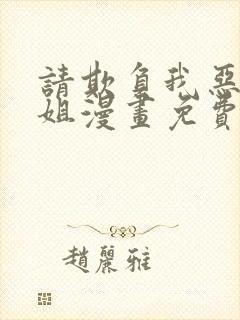 請欺負我惡
姐漫畫免費
趙麗雅